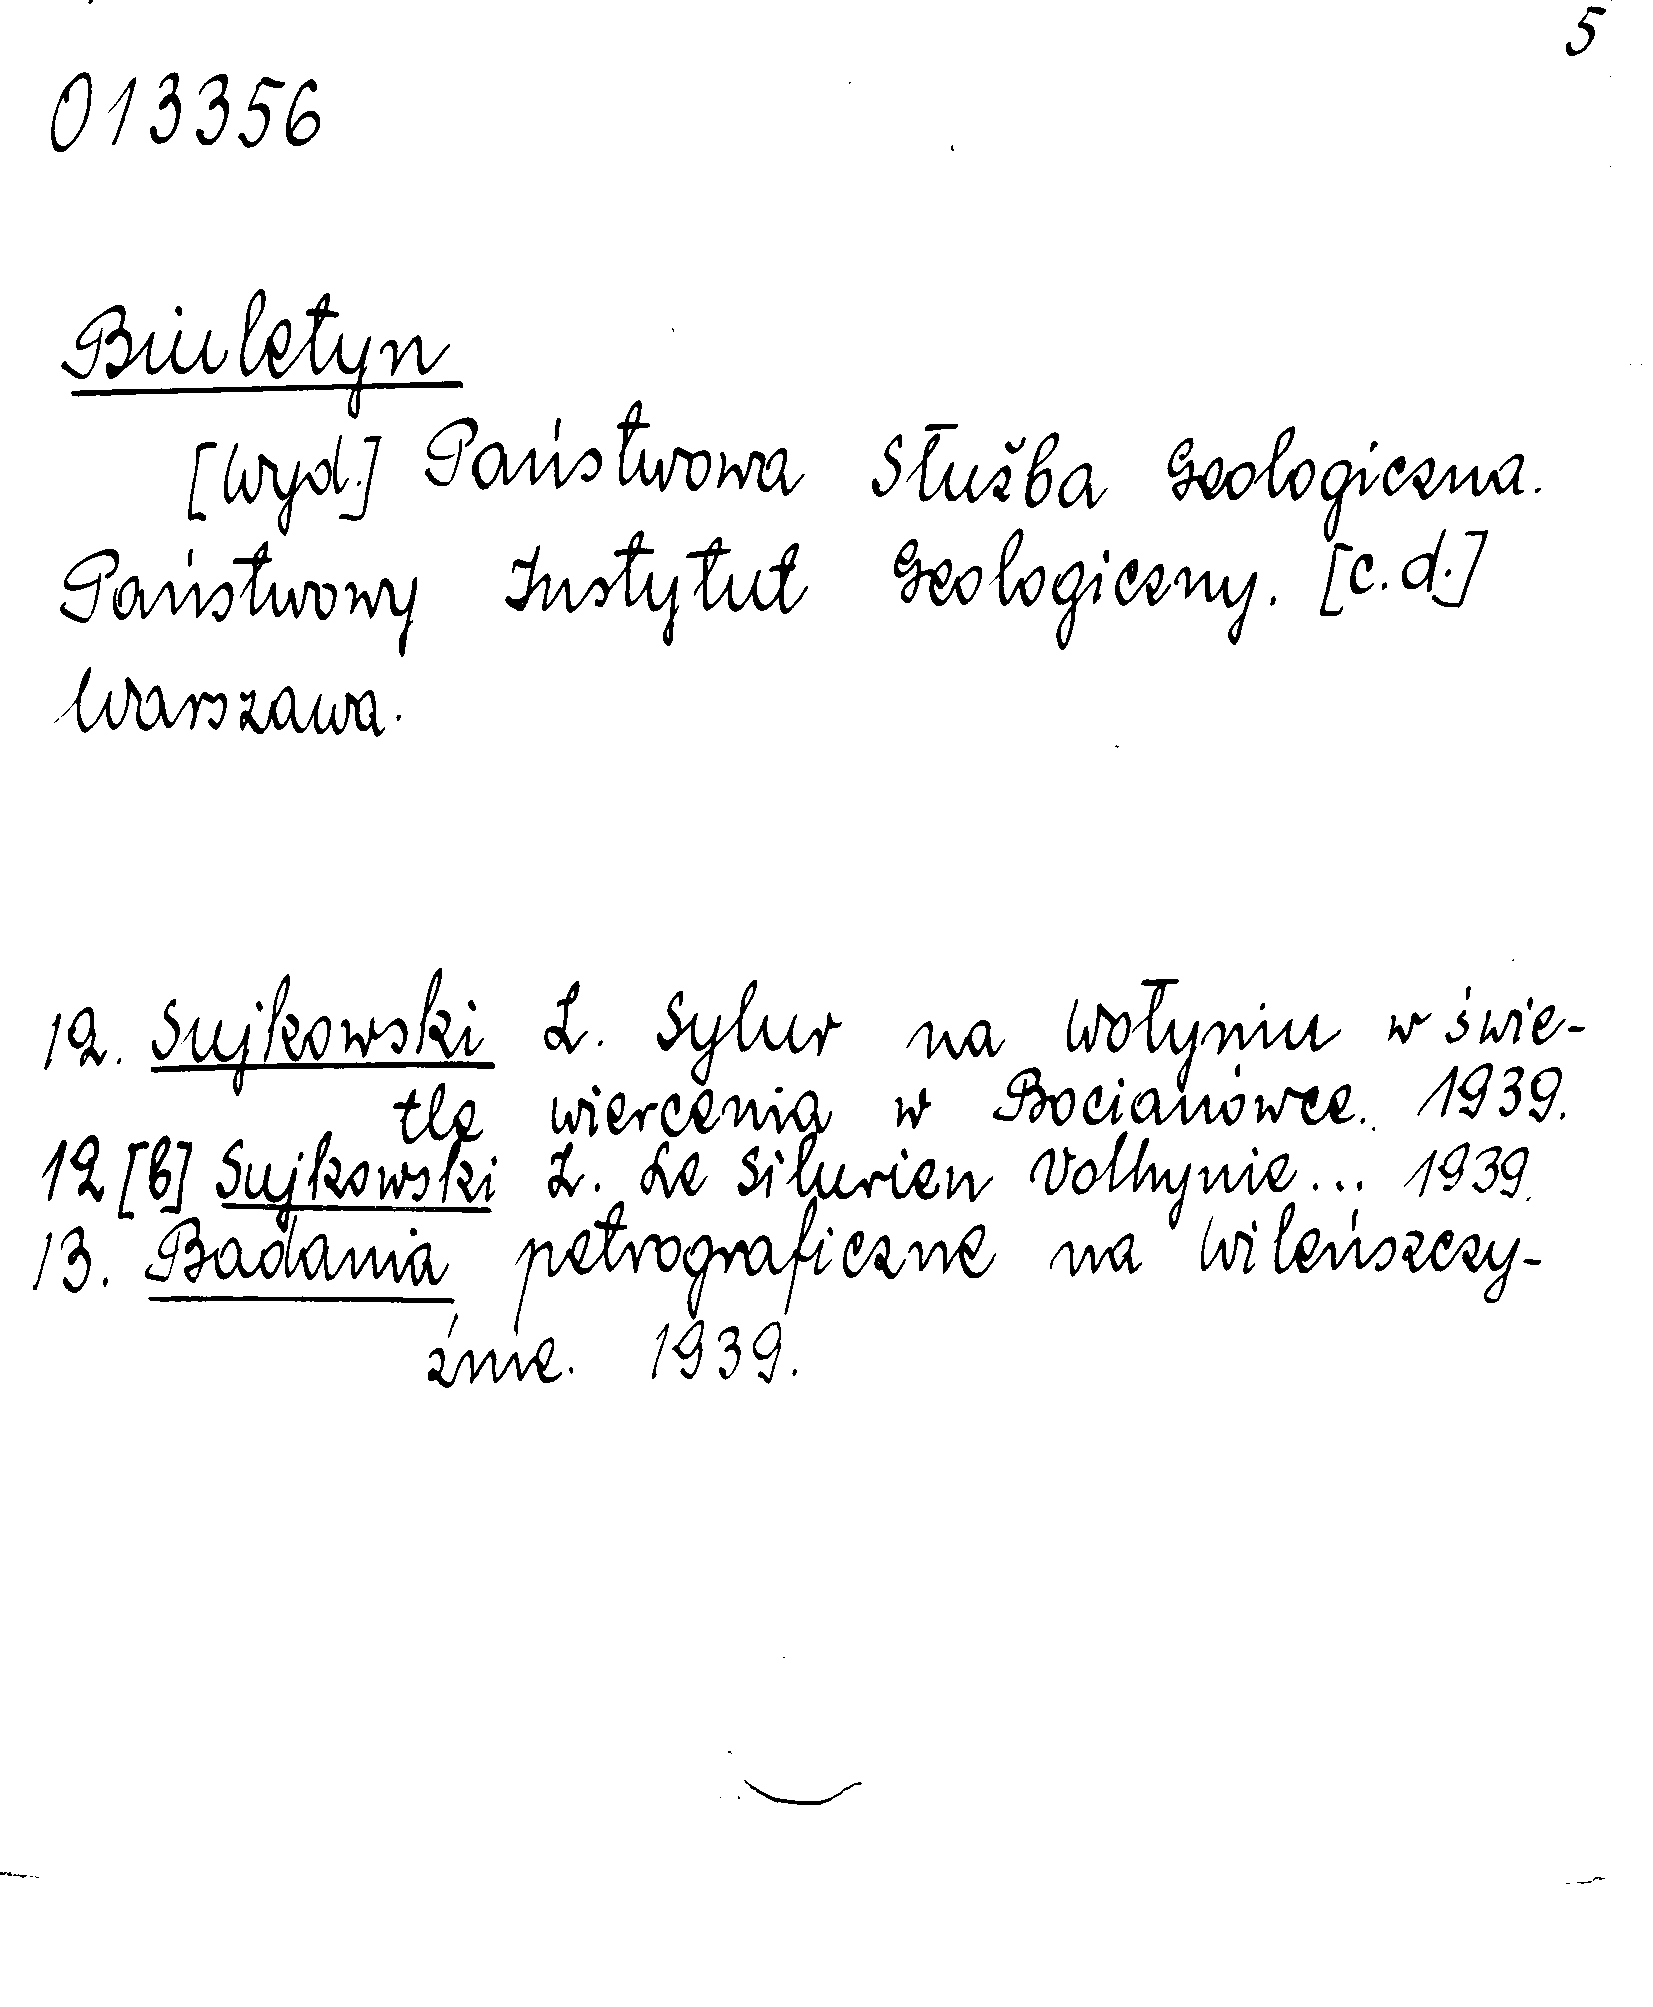 5
013356
Biuletyn
[Wyd.] Państwowa Służba Geologiczna.
Państwowy Instytut Geologiczny. [c.d.]
Warszawa.
12. Sujkowski Z. Sylur na Wołyniu w świe-
tle wiercenia w Bocianówce. 1939.
12 [b] Sujkowski Z. Le Silurien Volhynie... 1939.
13. Badania petrograficzne na Wileńszczy-
źnie. 1939.